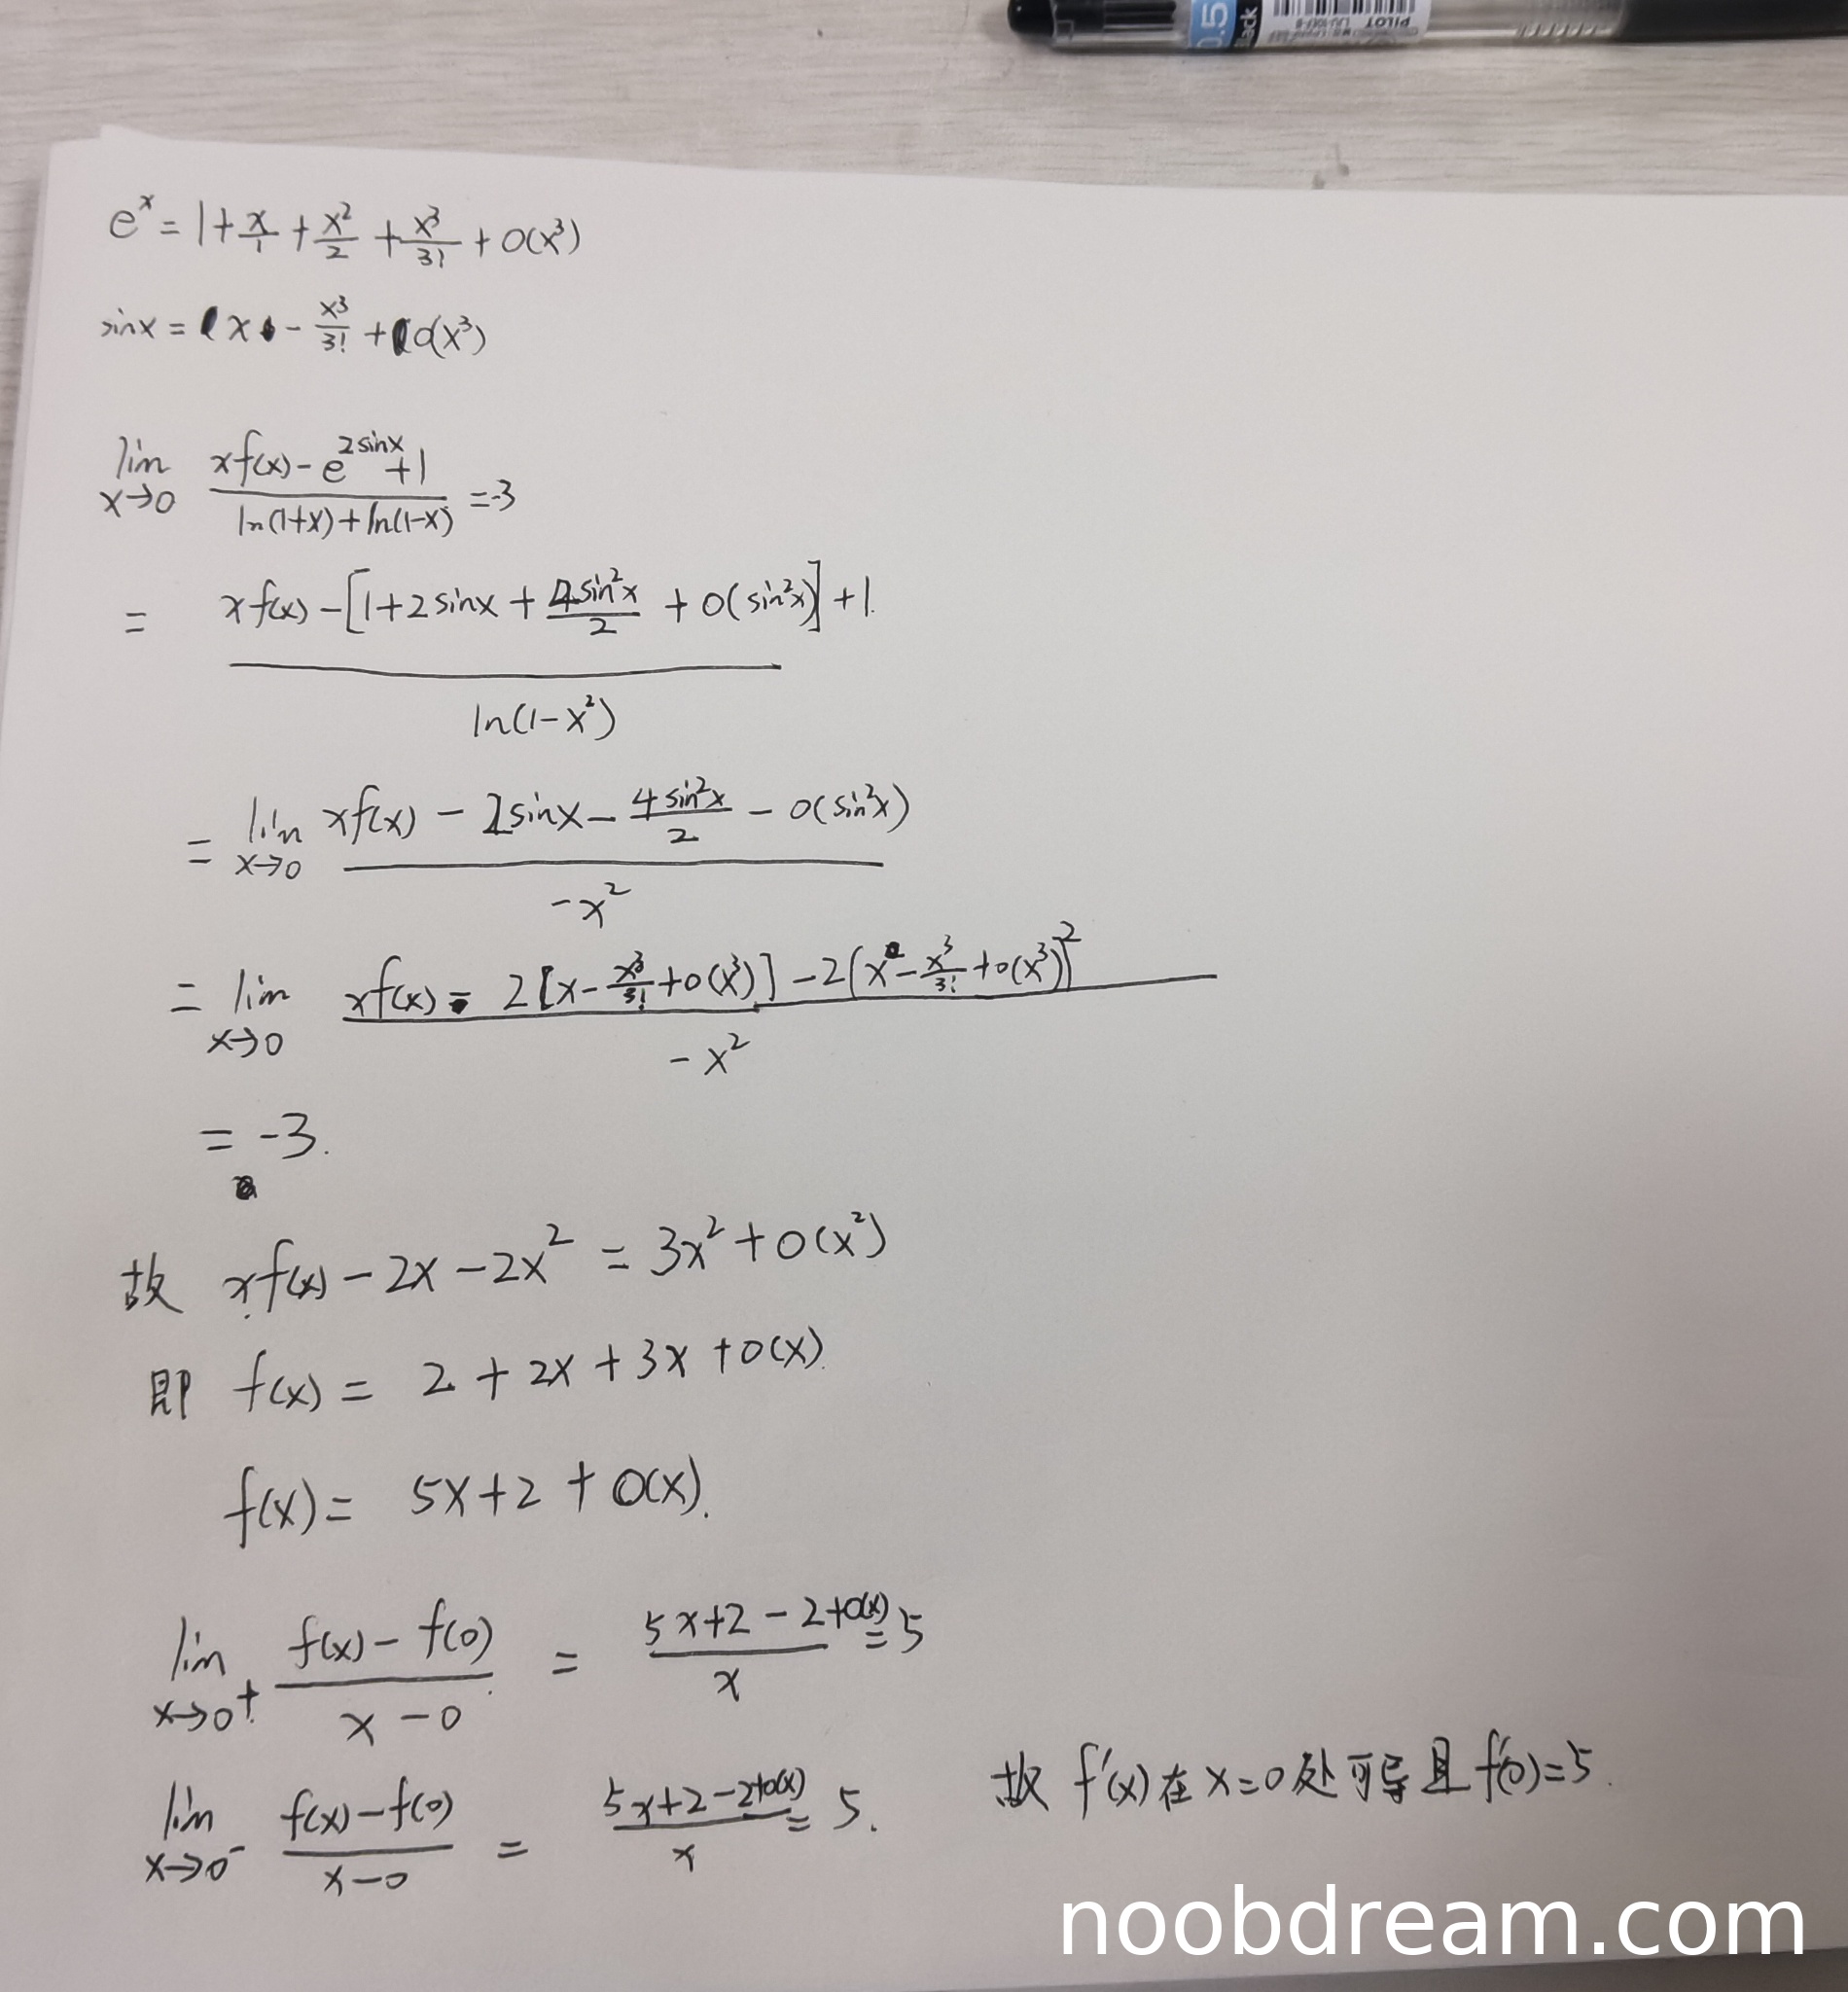 0.5
Black
PILOT
e^x = 1 + x/1 + x²/2 + x³/3! + o(x³)
sinx = x - x³/3! + o(x³)
lim x→0 (xf(x) - e^(2sinx) + 1)/(ln(1+x) + ln(1-x)) = -3
= (xf(x) - [1 + 2sinx + 4sin²x/2 + o(sin²x)] + 1)/ln(1-x²)
= lim x→0 (xf(x) - 2sinx - 4sin²x/2 - o(sin²x))/(-x²)
= lim x→0 (xf(x) - 2[x - x³/3! + o(x³)] - 2(x - x³/3! + o(x³))²)/(-x²)
= -3.
故 xf(x) - 2x - 2x² = 3x² + o(x²)
即 f(x) = 2 + 2x + 3x + o(x).
f(x) = 5x + 2 + o(x).
lim x→0⁺ (f(x) - f(0))/(x - 0) = (5x + 2 - 2 + o(x))/x = 5
lim x→0⁻ (f(x) - f(0))/(x - 0) = (5x + 2 - 2 + o(x))/x = 5.
故 f'(x) 在 x=0 处可导且 f'(0)=5.
noobdream.com